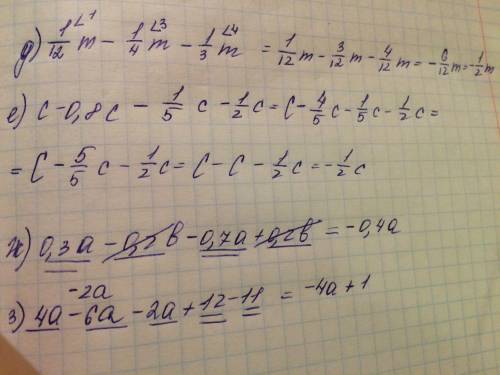 д) 1/12 m ∠1 - 1/4 m ∠3 - 1/3 m ∠4 = 1/12 m - 3/12 m - 4/12 m = -6/12 m = -1/2 m
е) c - 0,8c - 1/5 c - 1/2 c = c - 4/5 c - 1/5 c - 1/2 c =
= c - 5/5 c - 1/2 c = c - c - 1/2 c = -1/2 c
ж) 0,3a - 0,2b - 0,7a + 0,2b = -0,4a
-2a
з) 4a - 6a - 2a + 12 - 11 = -4a + 1